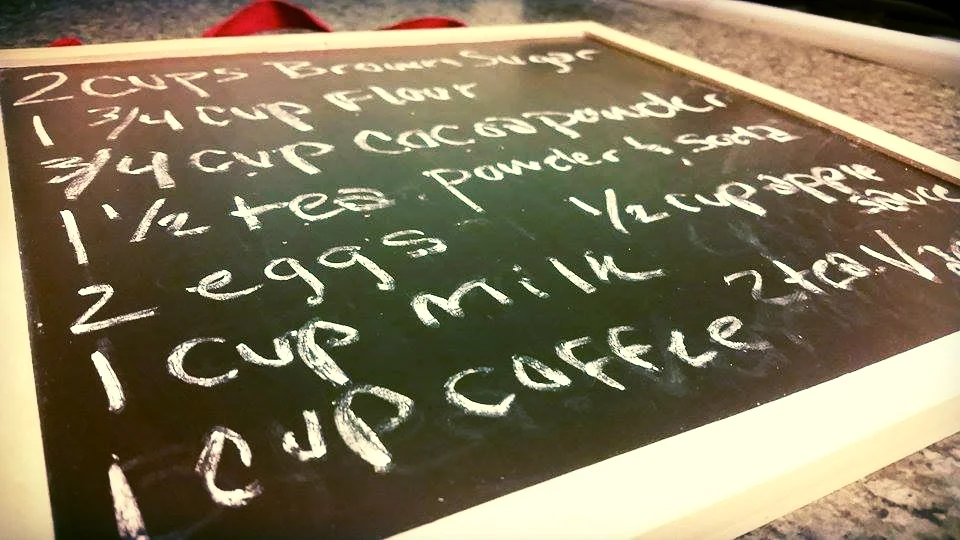 2 cups Brown Sugar
1 3/4 cup Flour
3/4 cup cocoa powder
1 1/2 tea powder & Soda
2 eggs 1/2 cup apple sauce
1 cup milk
1 cup coffee 2 tea